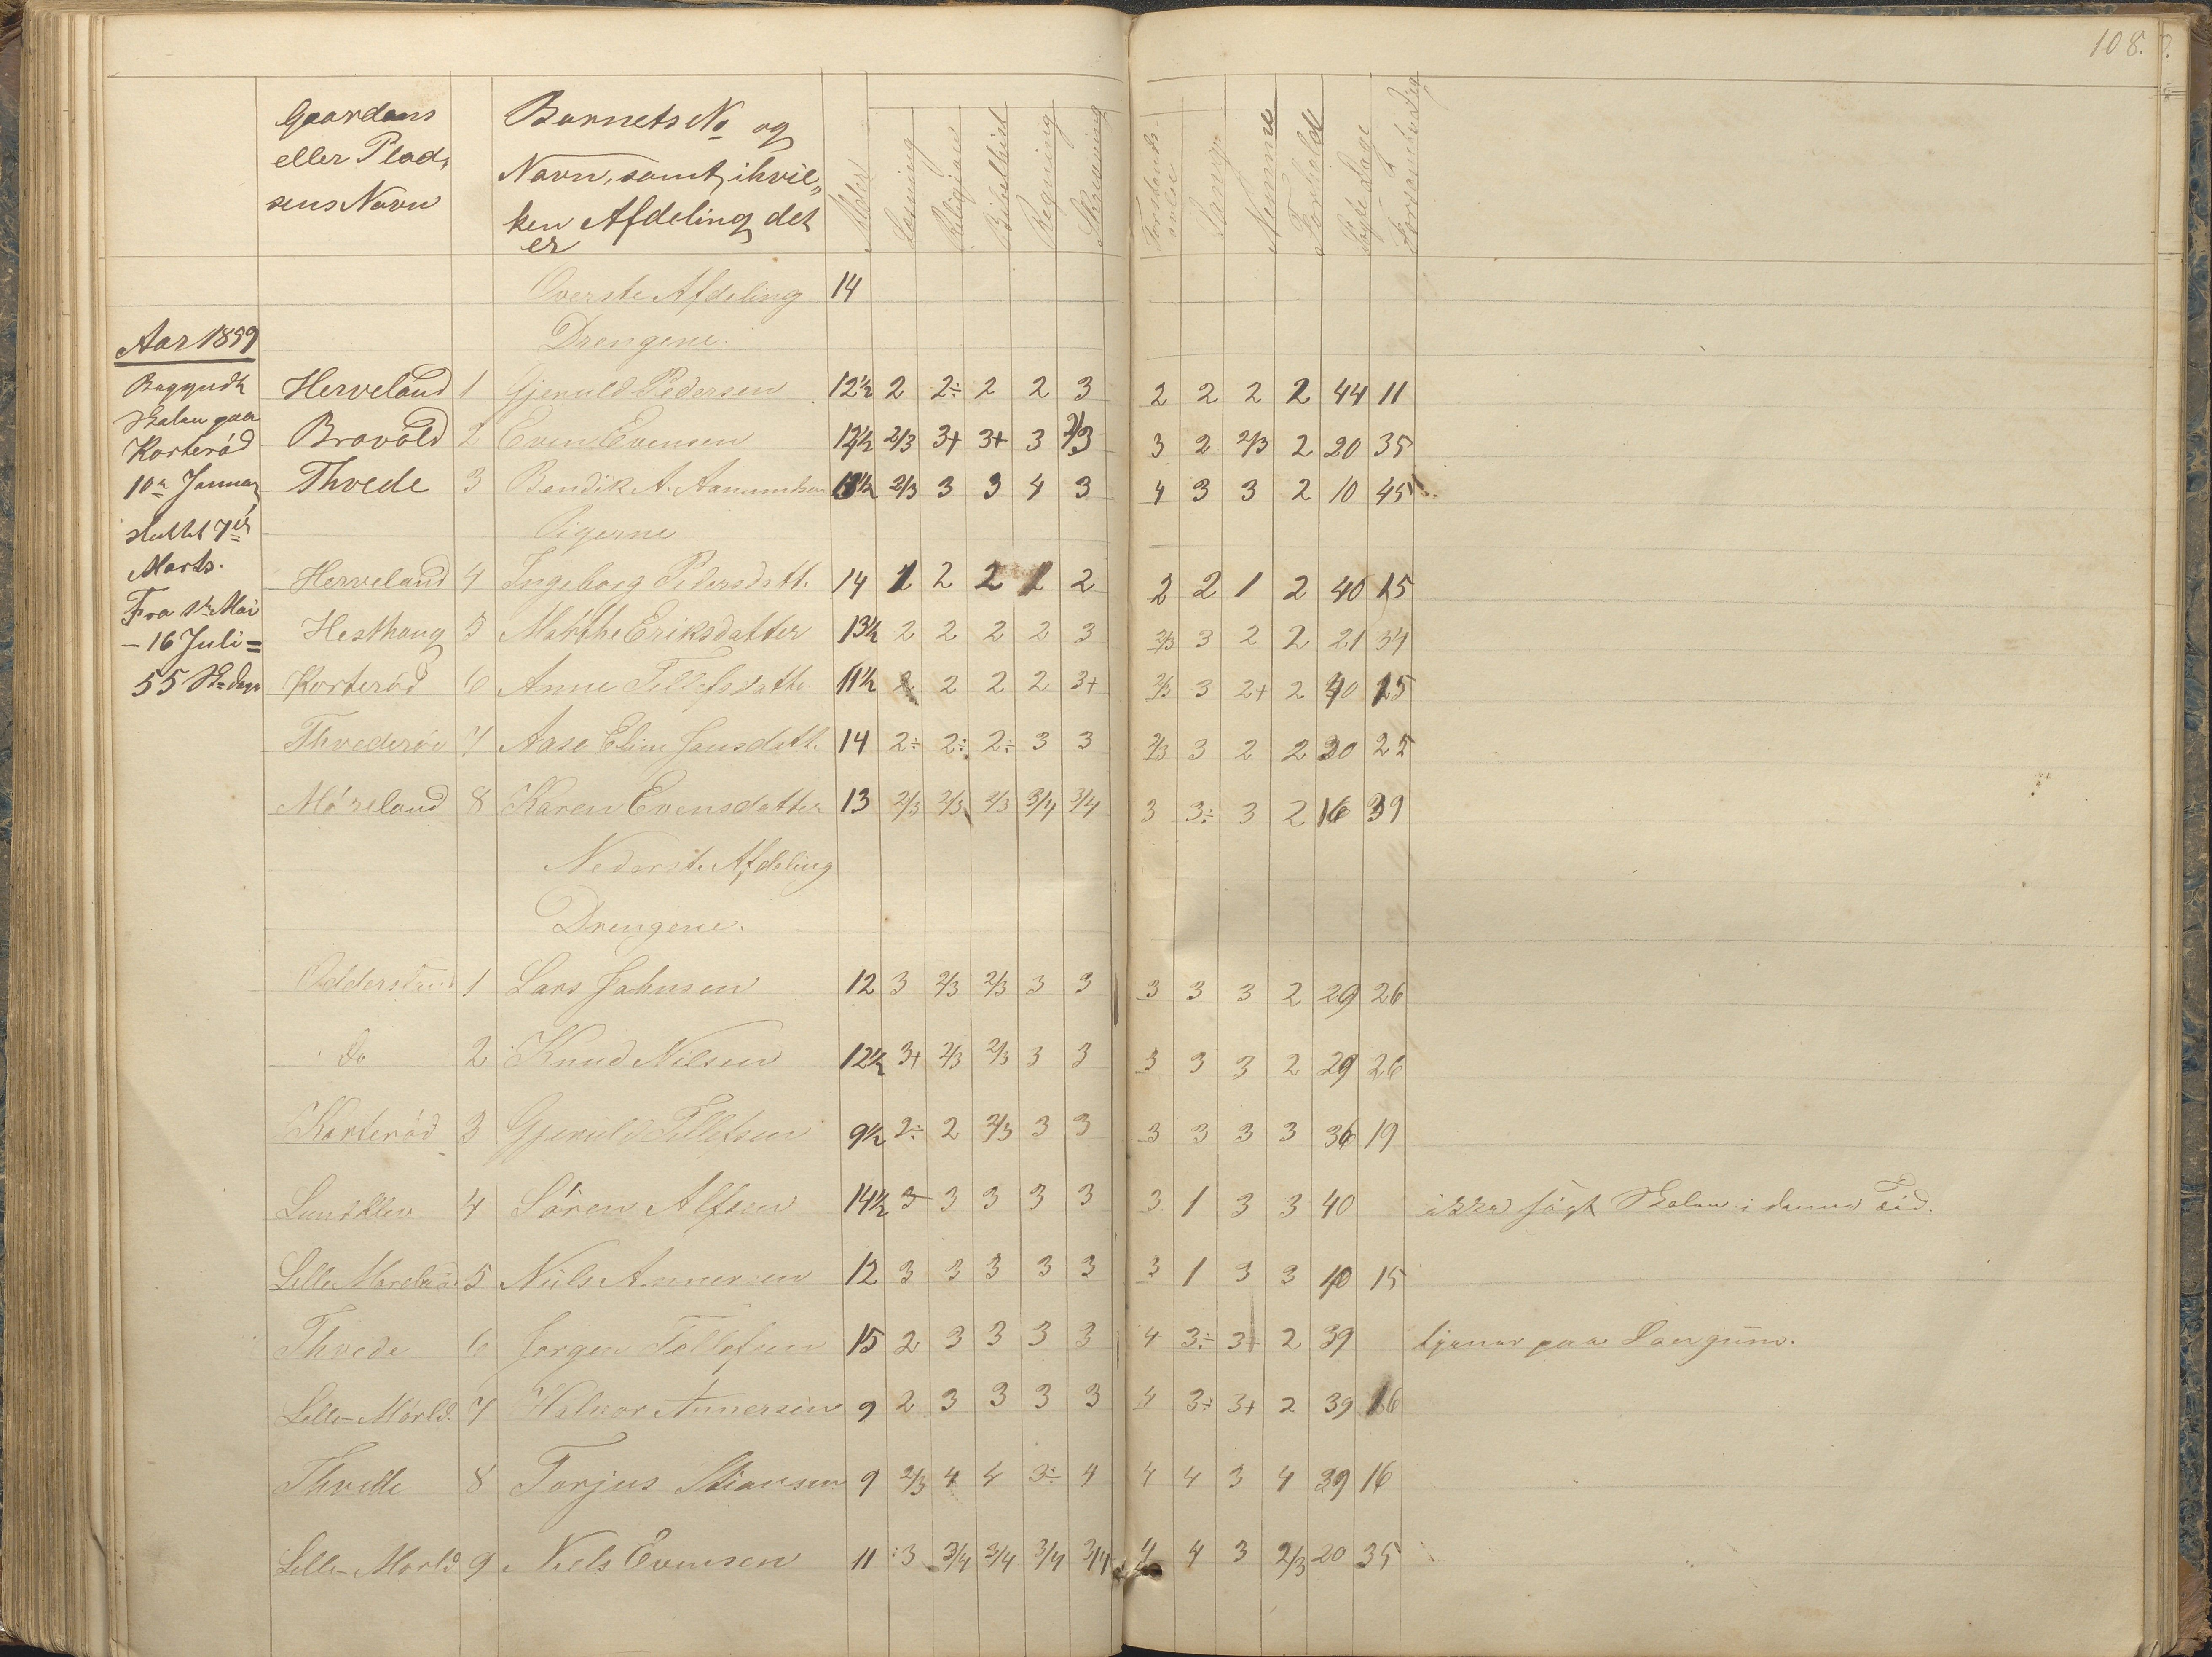 108.
Gaardens eller Pladsens Navn
Barnets No og Navn, samt i hvilken Afdeling det er
Alder Læsning Religion Bibelhist Regning Skrivning Forstands- Sang Nemme Forhold Søgte Dage Forsømte Dage
Overste Afdeling 14
Aar 1859
Drengene.
Begyndt Skolen paa Korterød 10de Januar, sluttet 7de Marts.
Fra 1ste Mai – 16 Juli = 55 Sk=dage
Herveland 1 Gjeruld Pedersen 12½ 2 2÷ 2 2 3 2 2 2 2 44 11
Bravold 2 Even Evensen 12½ 2/3 3+ 3+ 3 2/3 3 2 2/3 2 20 35
Thvede 3 Bendik A. Aanundsen 2/3 3 3 4 3 4 3 3 2 10 45
Pigerne
Herveland 4 Ingeborg Pedersdatt. 14 1 2 2 1 2 2 2 1 2 40 15
Hesthaug 5 Marthe Eriksdatter 13½ 2 2 2 2 3 2/3 3 2 2 21 34
Korterød 6 Anne Tellefsdatte 11½ 2 2 2 2 3+ 2/3 3 2+ 2 40 15
Thvederøe 7 Aase Eline Jansdatte 14 2÷ 2÷ 2÷ 3 3 2/3 3 2 2 30 25
Møreland 8 Karen Evensdatter 13 2/3 2/3 2/3 3/4 3/4 3 3÷ 3 2 16 39
Nederste Afdeling
Drengene.
1 Lars Jahnsen 12 3 2/3 2/3 3 3 3 3 3 2 29 26
do 2 Knud Nilsen 12½ 3+ 2/3 2/3 3 3 3 3 3 2 29 26
Korterød 3 Gjeruld Tellefsen 9½ 2÷ 2 2/3 3 3 3 3 3 3 36 19
4 Søren Alfsen 14½ 3 3 3 3 3 3 1 3 3 40 ikke søgt Skolen i denne Tid.
Lille Moreland 5 Niels Annersen 12 3 3 3 3 3 3 1 3 3 40 15
Thvede 6 Jorgen Tellefsen 15 2 3 3 3 3 4 3÷ 3+ 2 39 tjener paa Langum.
Lille-Mørld. 7 Halvor Annersen 9 2 3 3 3 3 4 3÷ 3+ 2 39 16
Thvede 8 Torjus Stiansen 9 2/3 4 4 3÷ 4 4 4 3 4 39 16
Lille-Morld 9 Niels Evensen 11 3 3/4 3/4 3/4 3/4 4 4 3 2/3 20 35